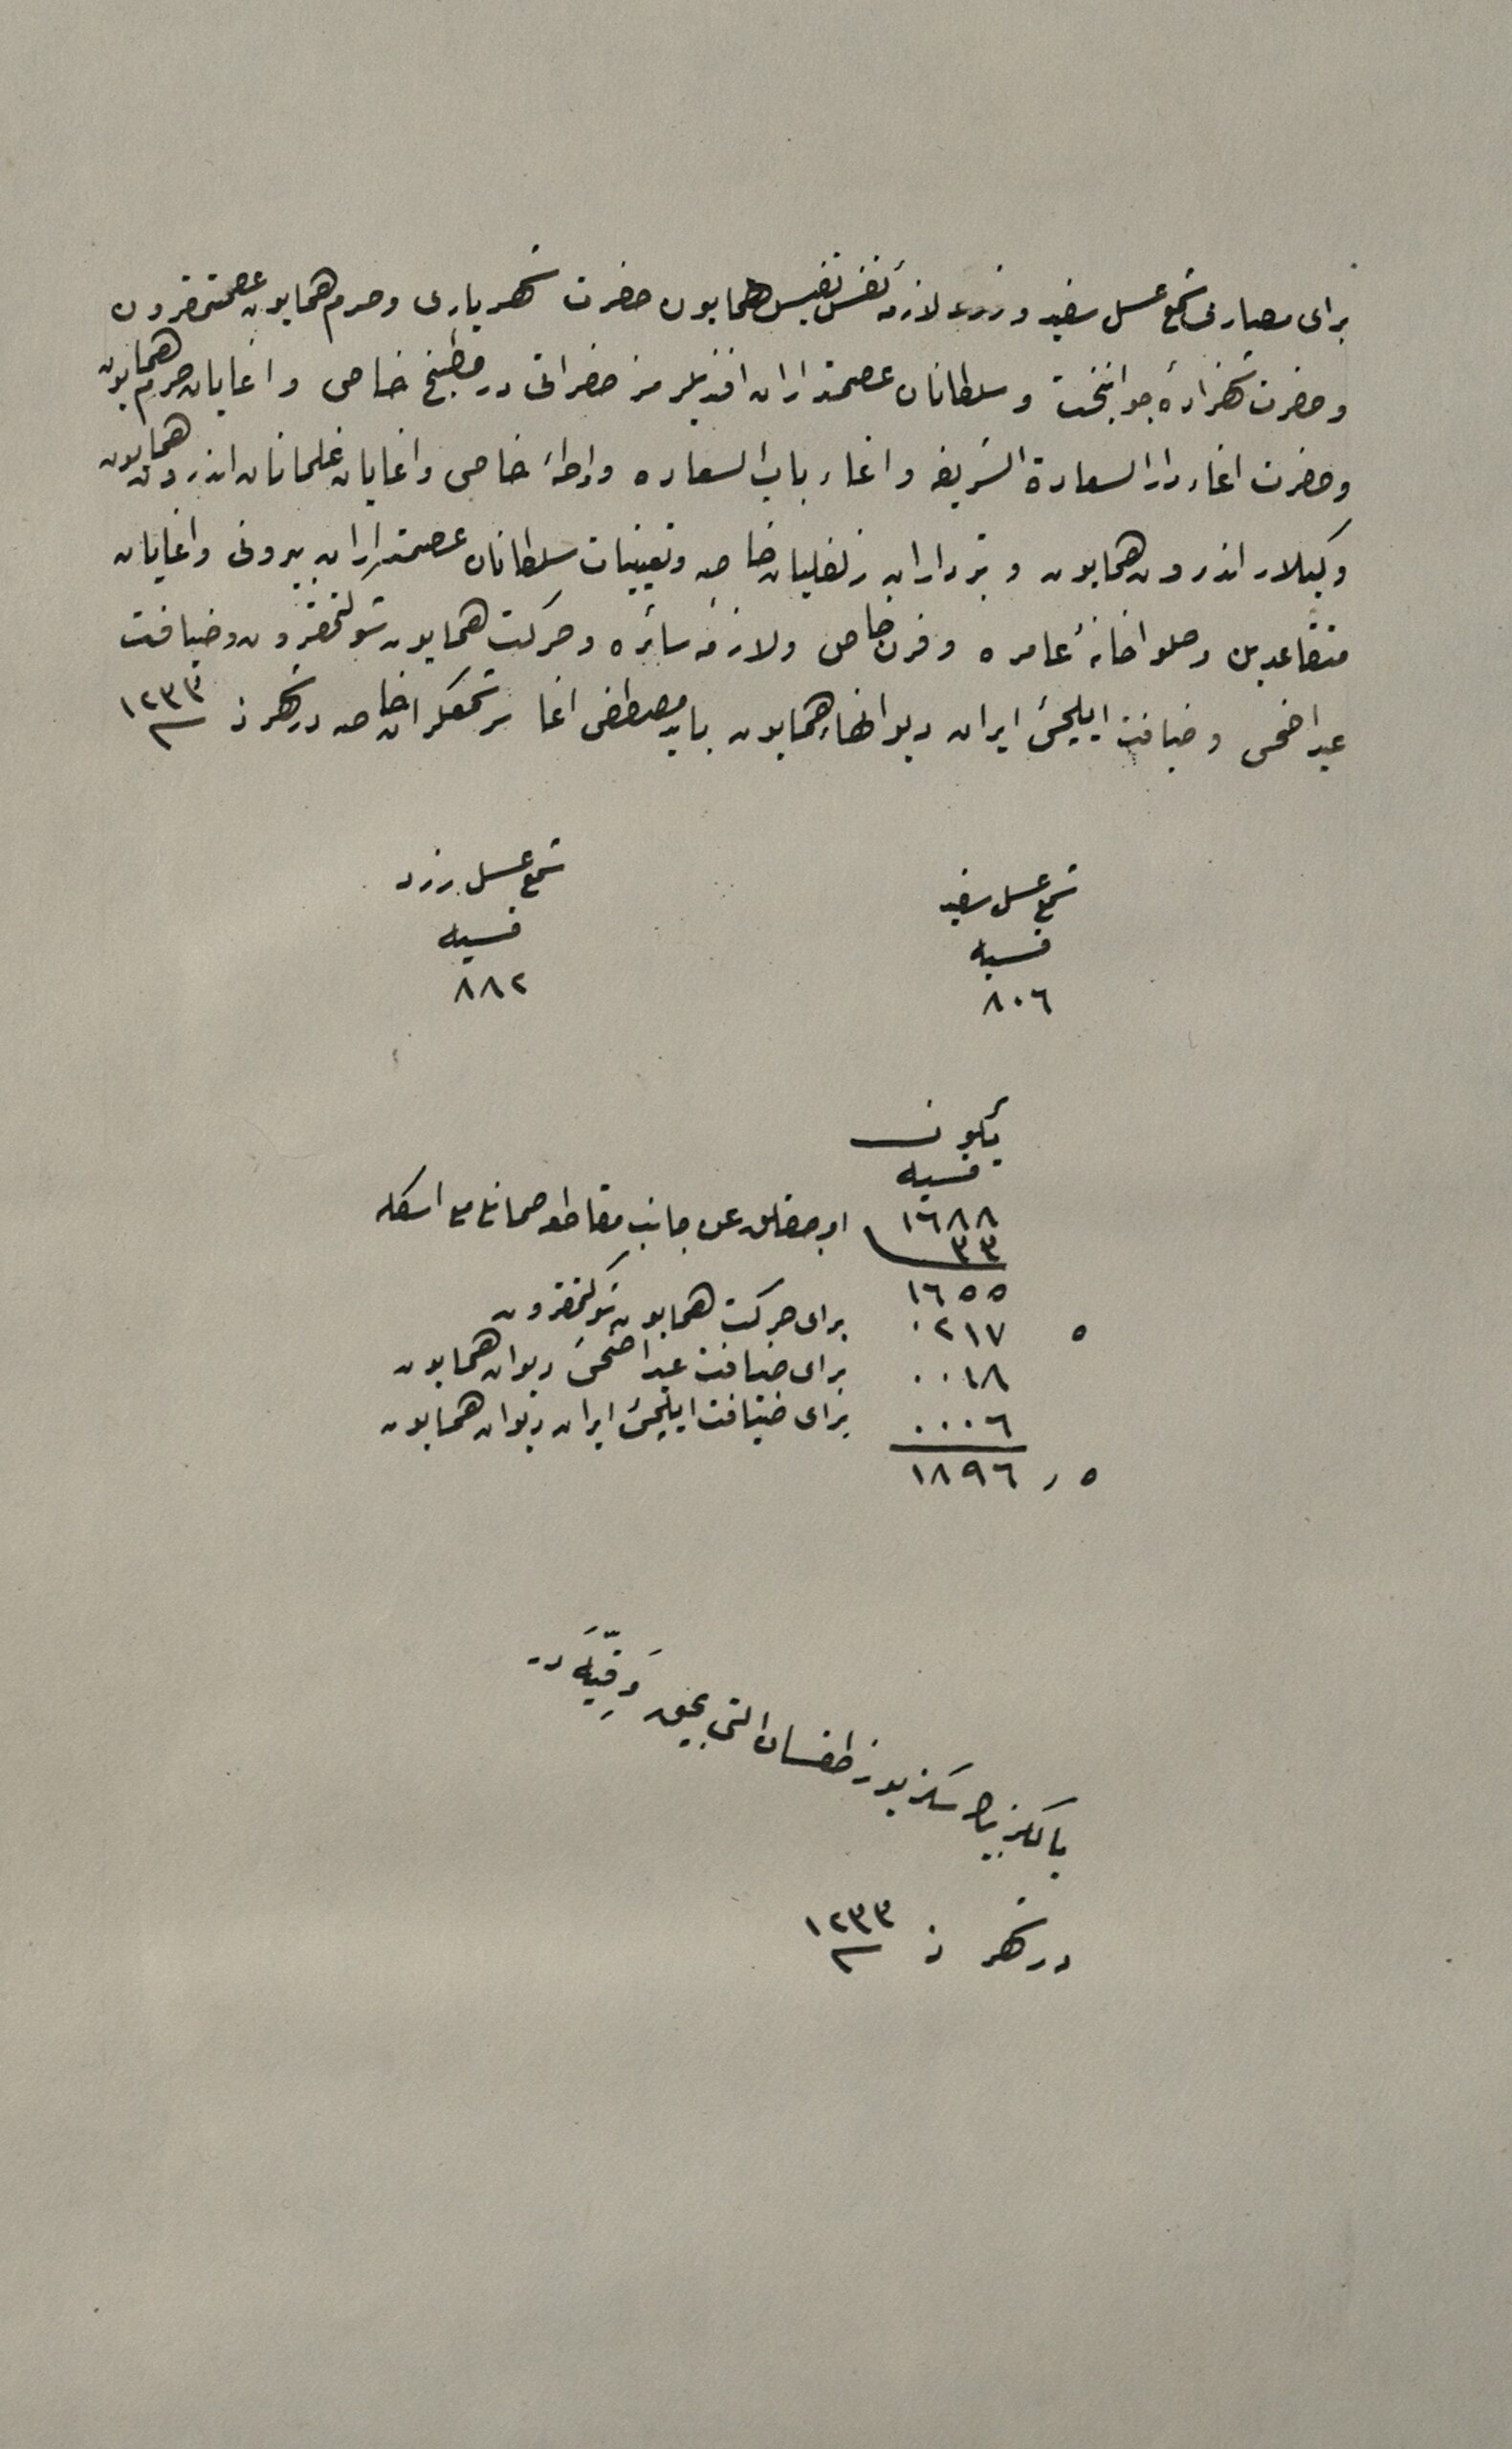 برای مصارف شمع عسل سفید و زرد لازمهٔ نفس نفیس همایون حضرت شهریاری و حرم همایون عصمتمقرون
و حضرت شهزادهٔ جوانبخت و سلطانان عصمتداران افندیلرمز حضراتی در مطبخ خاص و اغایان حرم همایون
و حضرت اغاء دار السعادة الشریفه و اغاء باب السعاده و اوطهٔ خاص و اغایان غلمانان اندرون همایون
و کیلار اندرون همایون و تبرداران زلفلیان خاصه و تعیینات سلطانان عصمتداران بیرونی و اغایان
متقاعدین و حلواخانهٔ عامره و فرن خاص و لازمهٔ سائره و حرکت همایون شوکتمقرون و ضیافت
عید اضحی و ضیافت ایلچیٔ ایران دیوانهاء همایون بايد مصطفی اغا سر شمعکران خاصه در شهر ذ سنه ١٢٣٣
شمع عسل سفید
قیه
٨٠٦
شمع عسل زرد
قیه
٨٨٢
یکون
قیه
١٦٨٨
٣٣ عن جانب مقاطعه
١٦٥٥
٠٢١٧ برای حرکت همایون شوکتمقرون ٥
٠٠١٨ برای ضیافت عید اضحی دیوان همایون
٠٠٠٦ برای ضیافت ایلچیٔ ایران دیوان همایون
١٨٩٦ ر ٥
یالکز بیك سکز یوز طقسان التی بچق وقیه در
در شهر ذ سنه ١٢٣٣